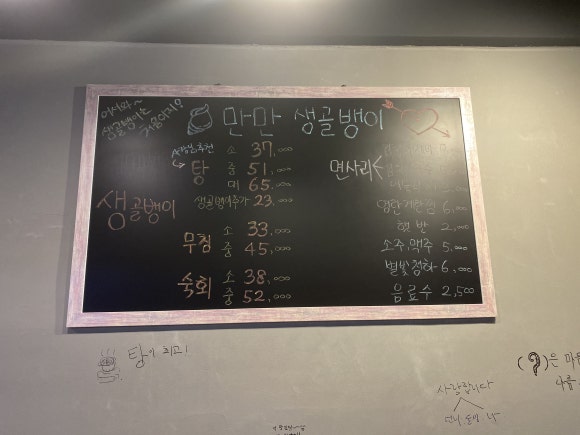 어서와~
생골뱅이는
처음이지?
만만 생골뱅이
생골뱅이
탕 소 37,000
중 51,000
대 65,000
생골뱅이추가 23,000
무침 소 33,000
중 45,000
숙회 소 38,000
중 52,000
면사리
명란계란찜 6,000
햇반 2,000
소주,맥주 5,000
별빛청하 6,000
음료수 2,500
탕이 최고!
사랑합니다